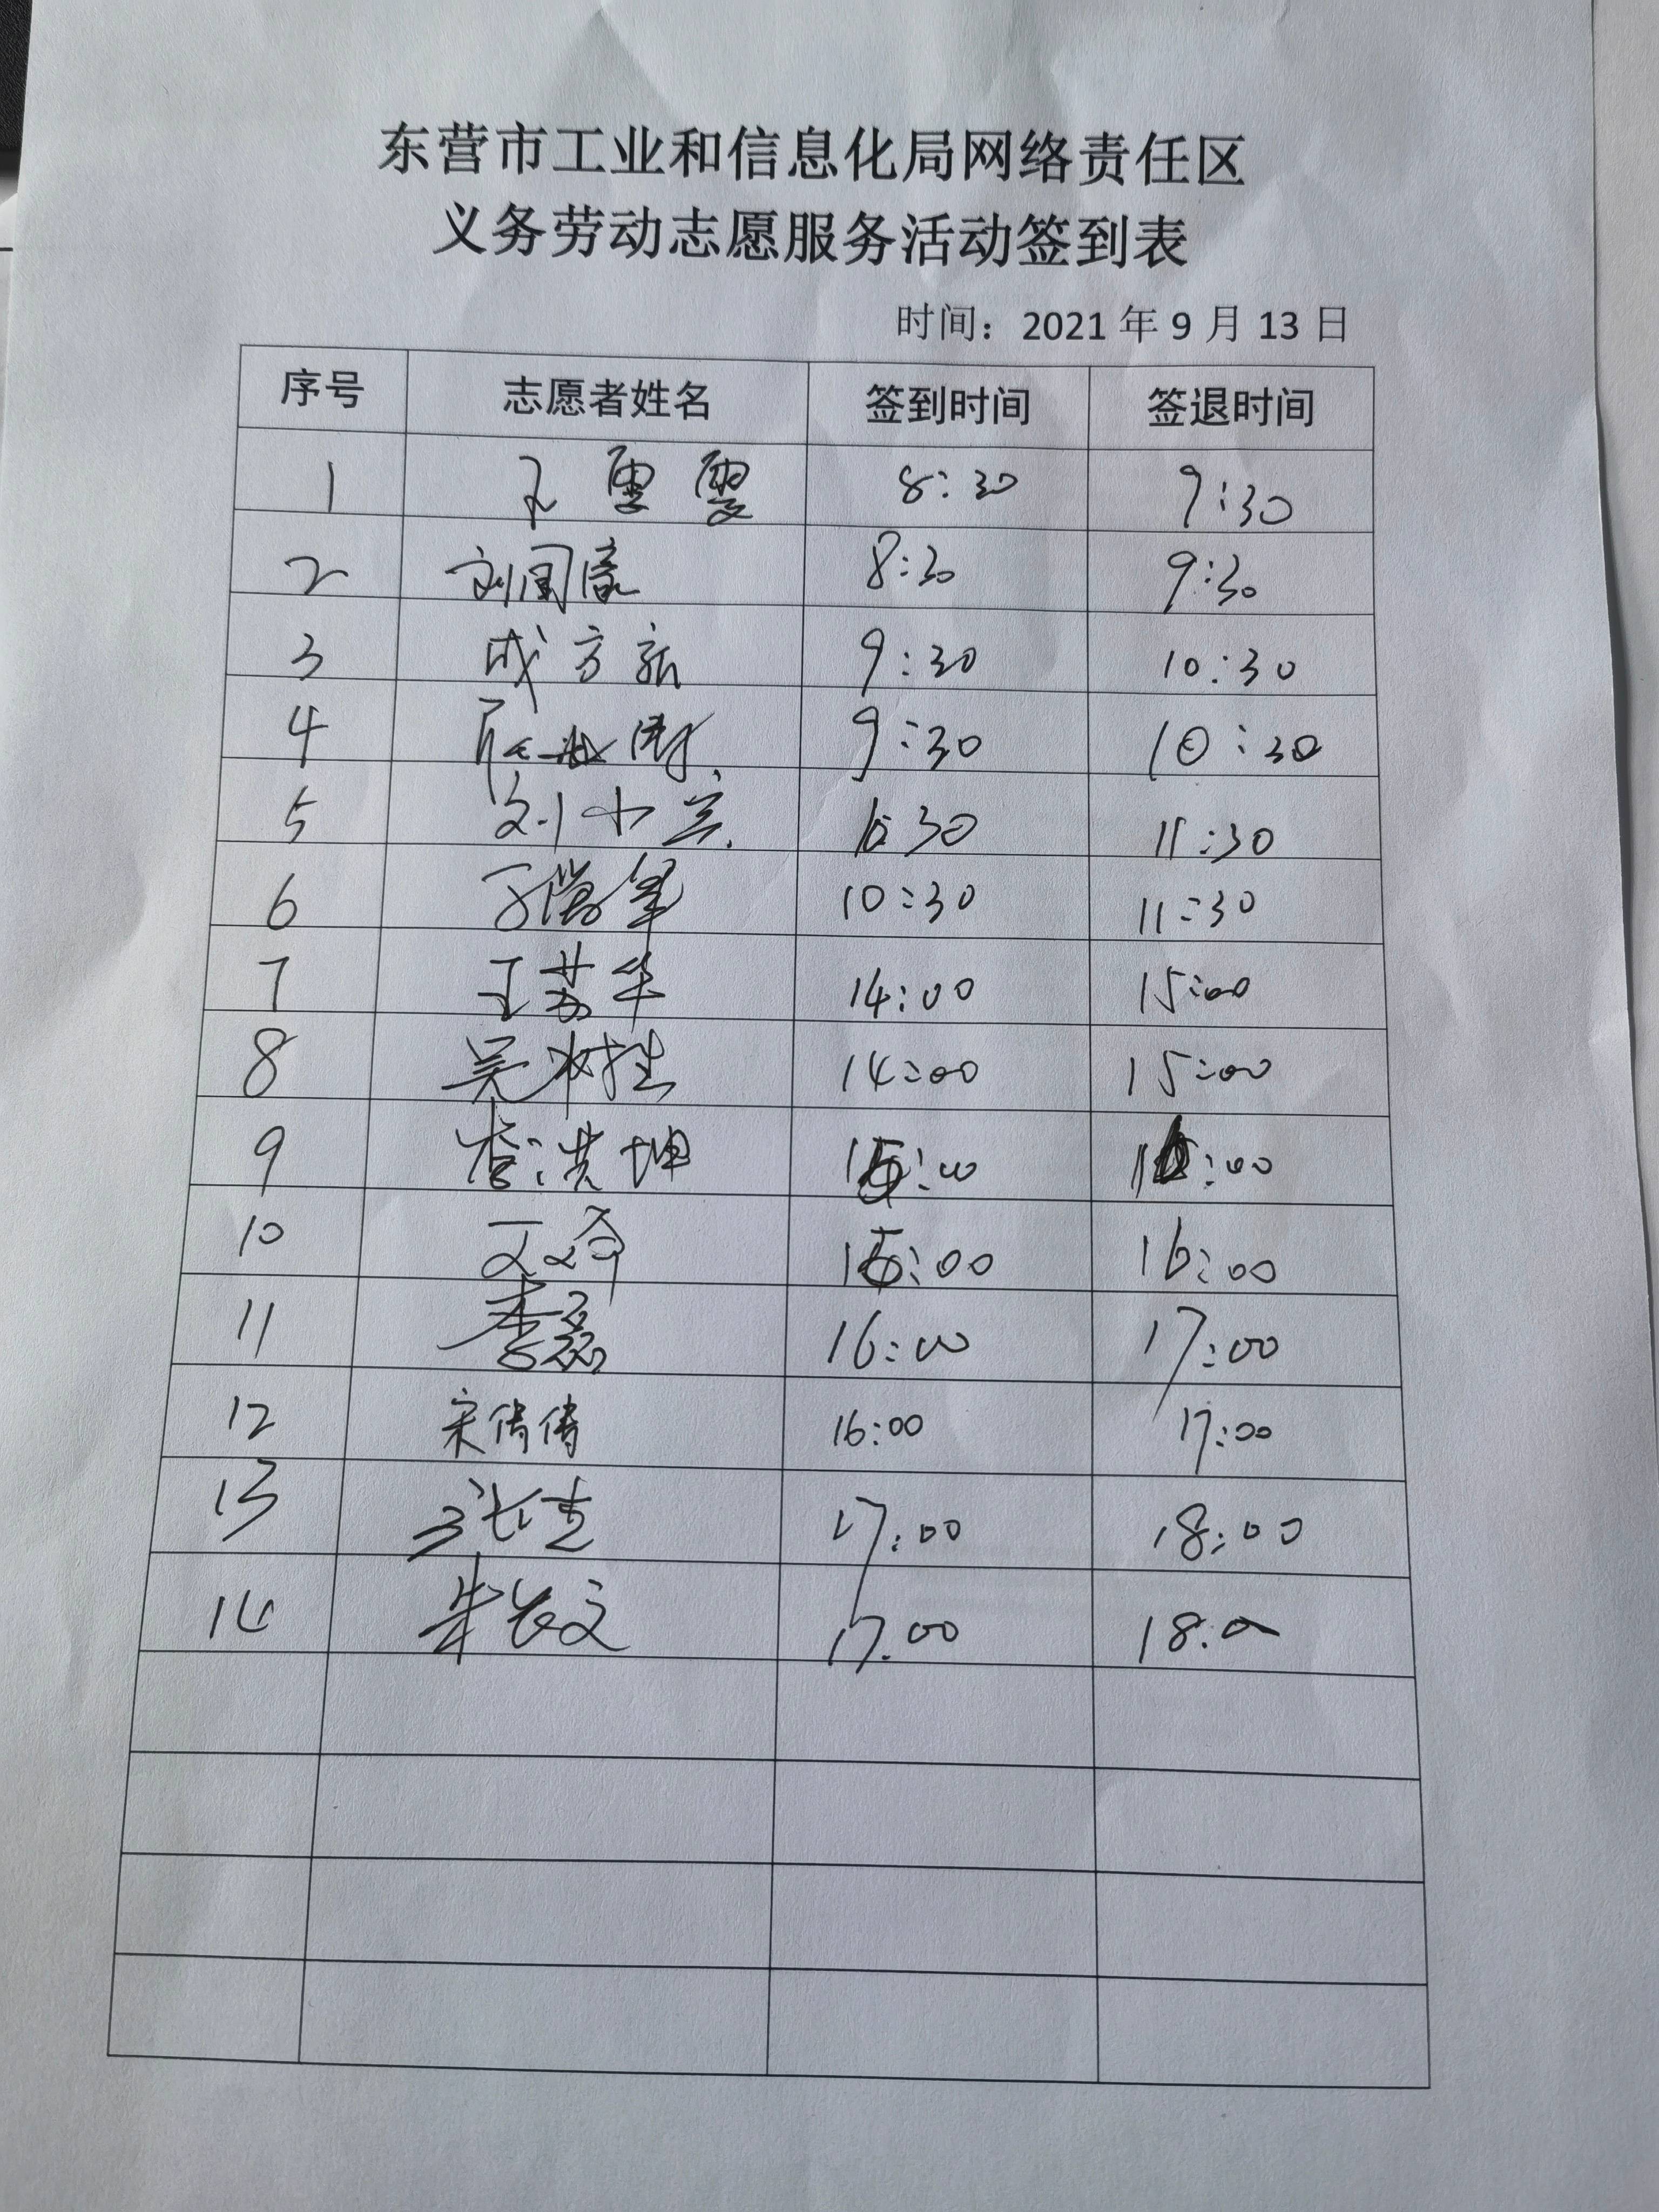 东营市工业和信息化局网络责任区
义务劳动志愿服务活动签到表
时间：2021年9月13日
序号 志愿者姓名 签到时间 签退时间
1 8:30 9:30
2 刘国 8:30 9:30
3 成方新 9:30 10:30
4 9:30 10:30
5 刘 10:30 11:30
6 10:30 11:30
7 王苏华 14:00 15:00
8 吴 14:00 15:00
9 李洪坤 15:00 16:00
10 15:00 16:00
11 李磊 16:00 17:00
12 宋倩倩 16:00 17:00
13 17:00 18:00
14 朱长文 17.00 18.00